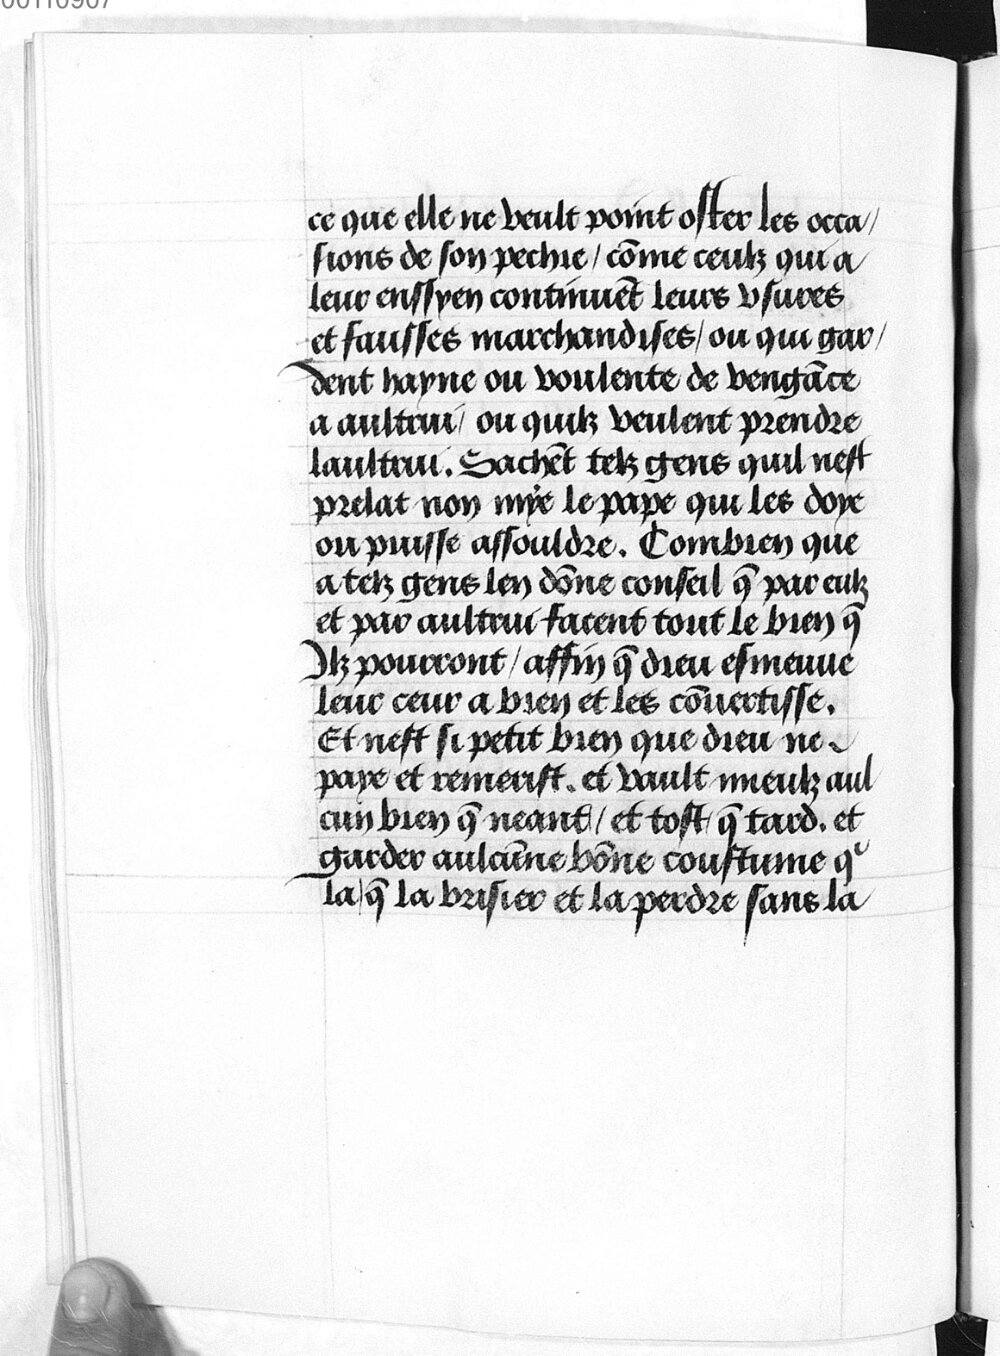 00110907
ce que elle ne veult point oster les occa/
sions de son pechie / cōme ceulz qui a
leur enssyen continuēt leurs vsures
et fausses marchandises / ou qui gar/
dent hayne ou voulente de vengāce
a aultrui / ou quilz veulent prendre
laultrui. Sachēt telz gens quil nest
prelat non mye le pape qui les doye
ou puisse assouldre. Combien que
a telz gens len dōne conseil q̄ par eulz
et par aultrui facent tout le bien q̄
Jlz pourront / affin q̄ dieu esmeuue
leur ceur a bien et les cōuertisse.
Et nest si petit bien que dieu ne
paye et remerist. et vault mieulz aul
cun bien q̄ neant / et tost q̄ tard. et
garder aulcūne bōne coustume q
la / q̄ la brisier et la perdre sans la